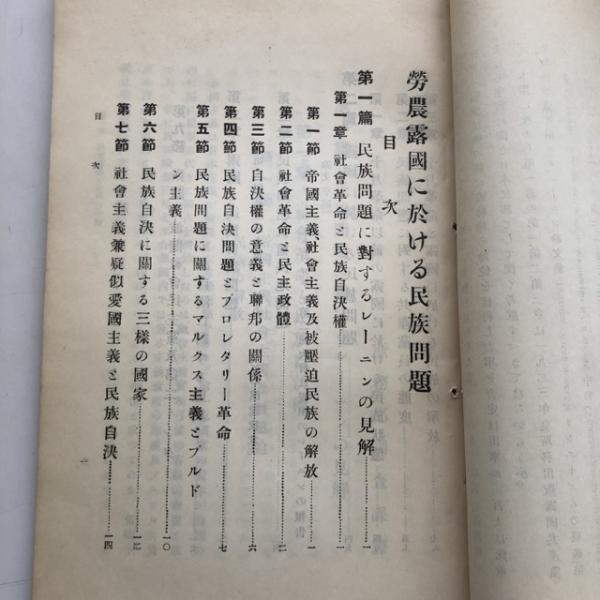 勞農露國に於ける民族問題
目次
第一篇 民族問題に對するレーニンの見解……一
第一章 社會革命と民族自決權……一
第一節 帝國主義、社會主義及被壓迫民族の解放……一
第二節 社會革命と民主政體……二
第三節 自決權の意義と聯邦の關係……六
第四節 民族自決問題とプロレタリー革命……七
第五節 民族問題に關するマルクス主義とプルド
ン主義……一〇
第六節 民族自決に關する三樣の國家……一二
第七節 社會主義兼疑似愛國主義と民族自決……一四
目次
一